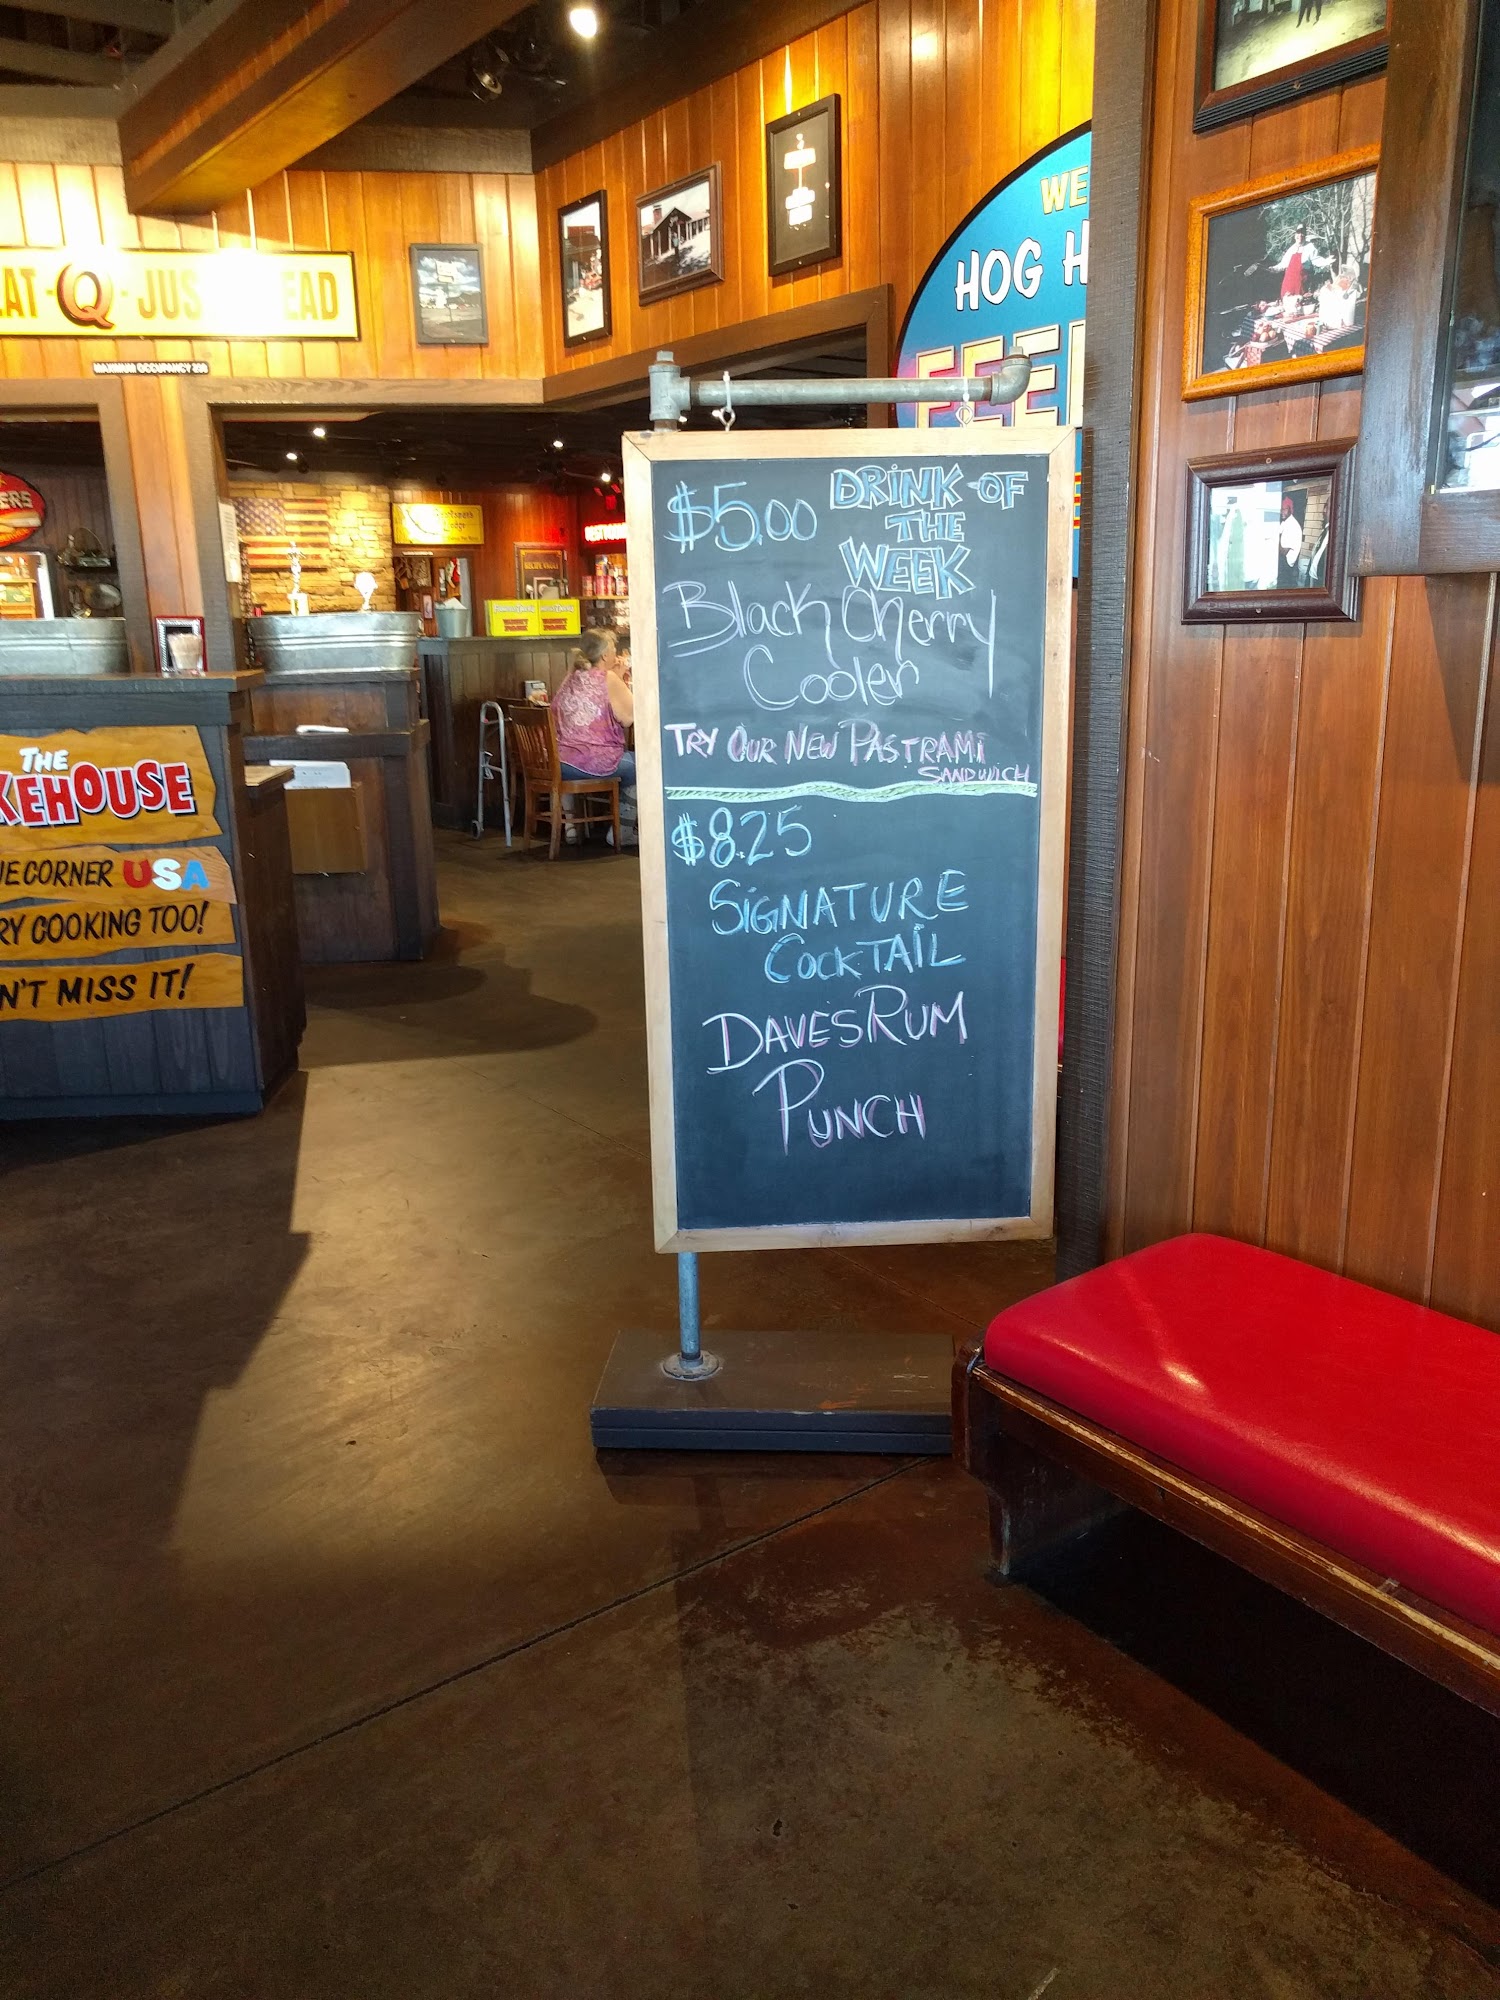 EAT - Q - JUS EAD
MAXIMUM OCCUPANCY
WE
HOG H
FEE
ERS
THE
KEHOUSE
CORNER USA
RY COOKING TOO!
N'T MISS IT!
$5.00
DRINK OF
THE
WEEK
Black Cherry
Cooler
TRY OUR NEW PASTRAMI
SANDWICH
$8.25
SIGNATURE
COCKTAIL
DAVES RUM
PUNCH